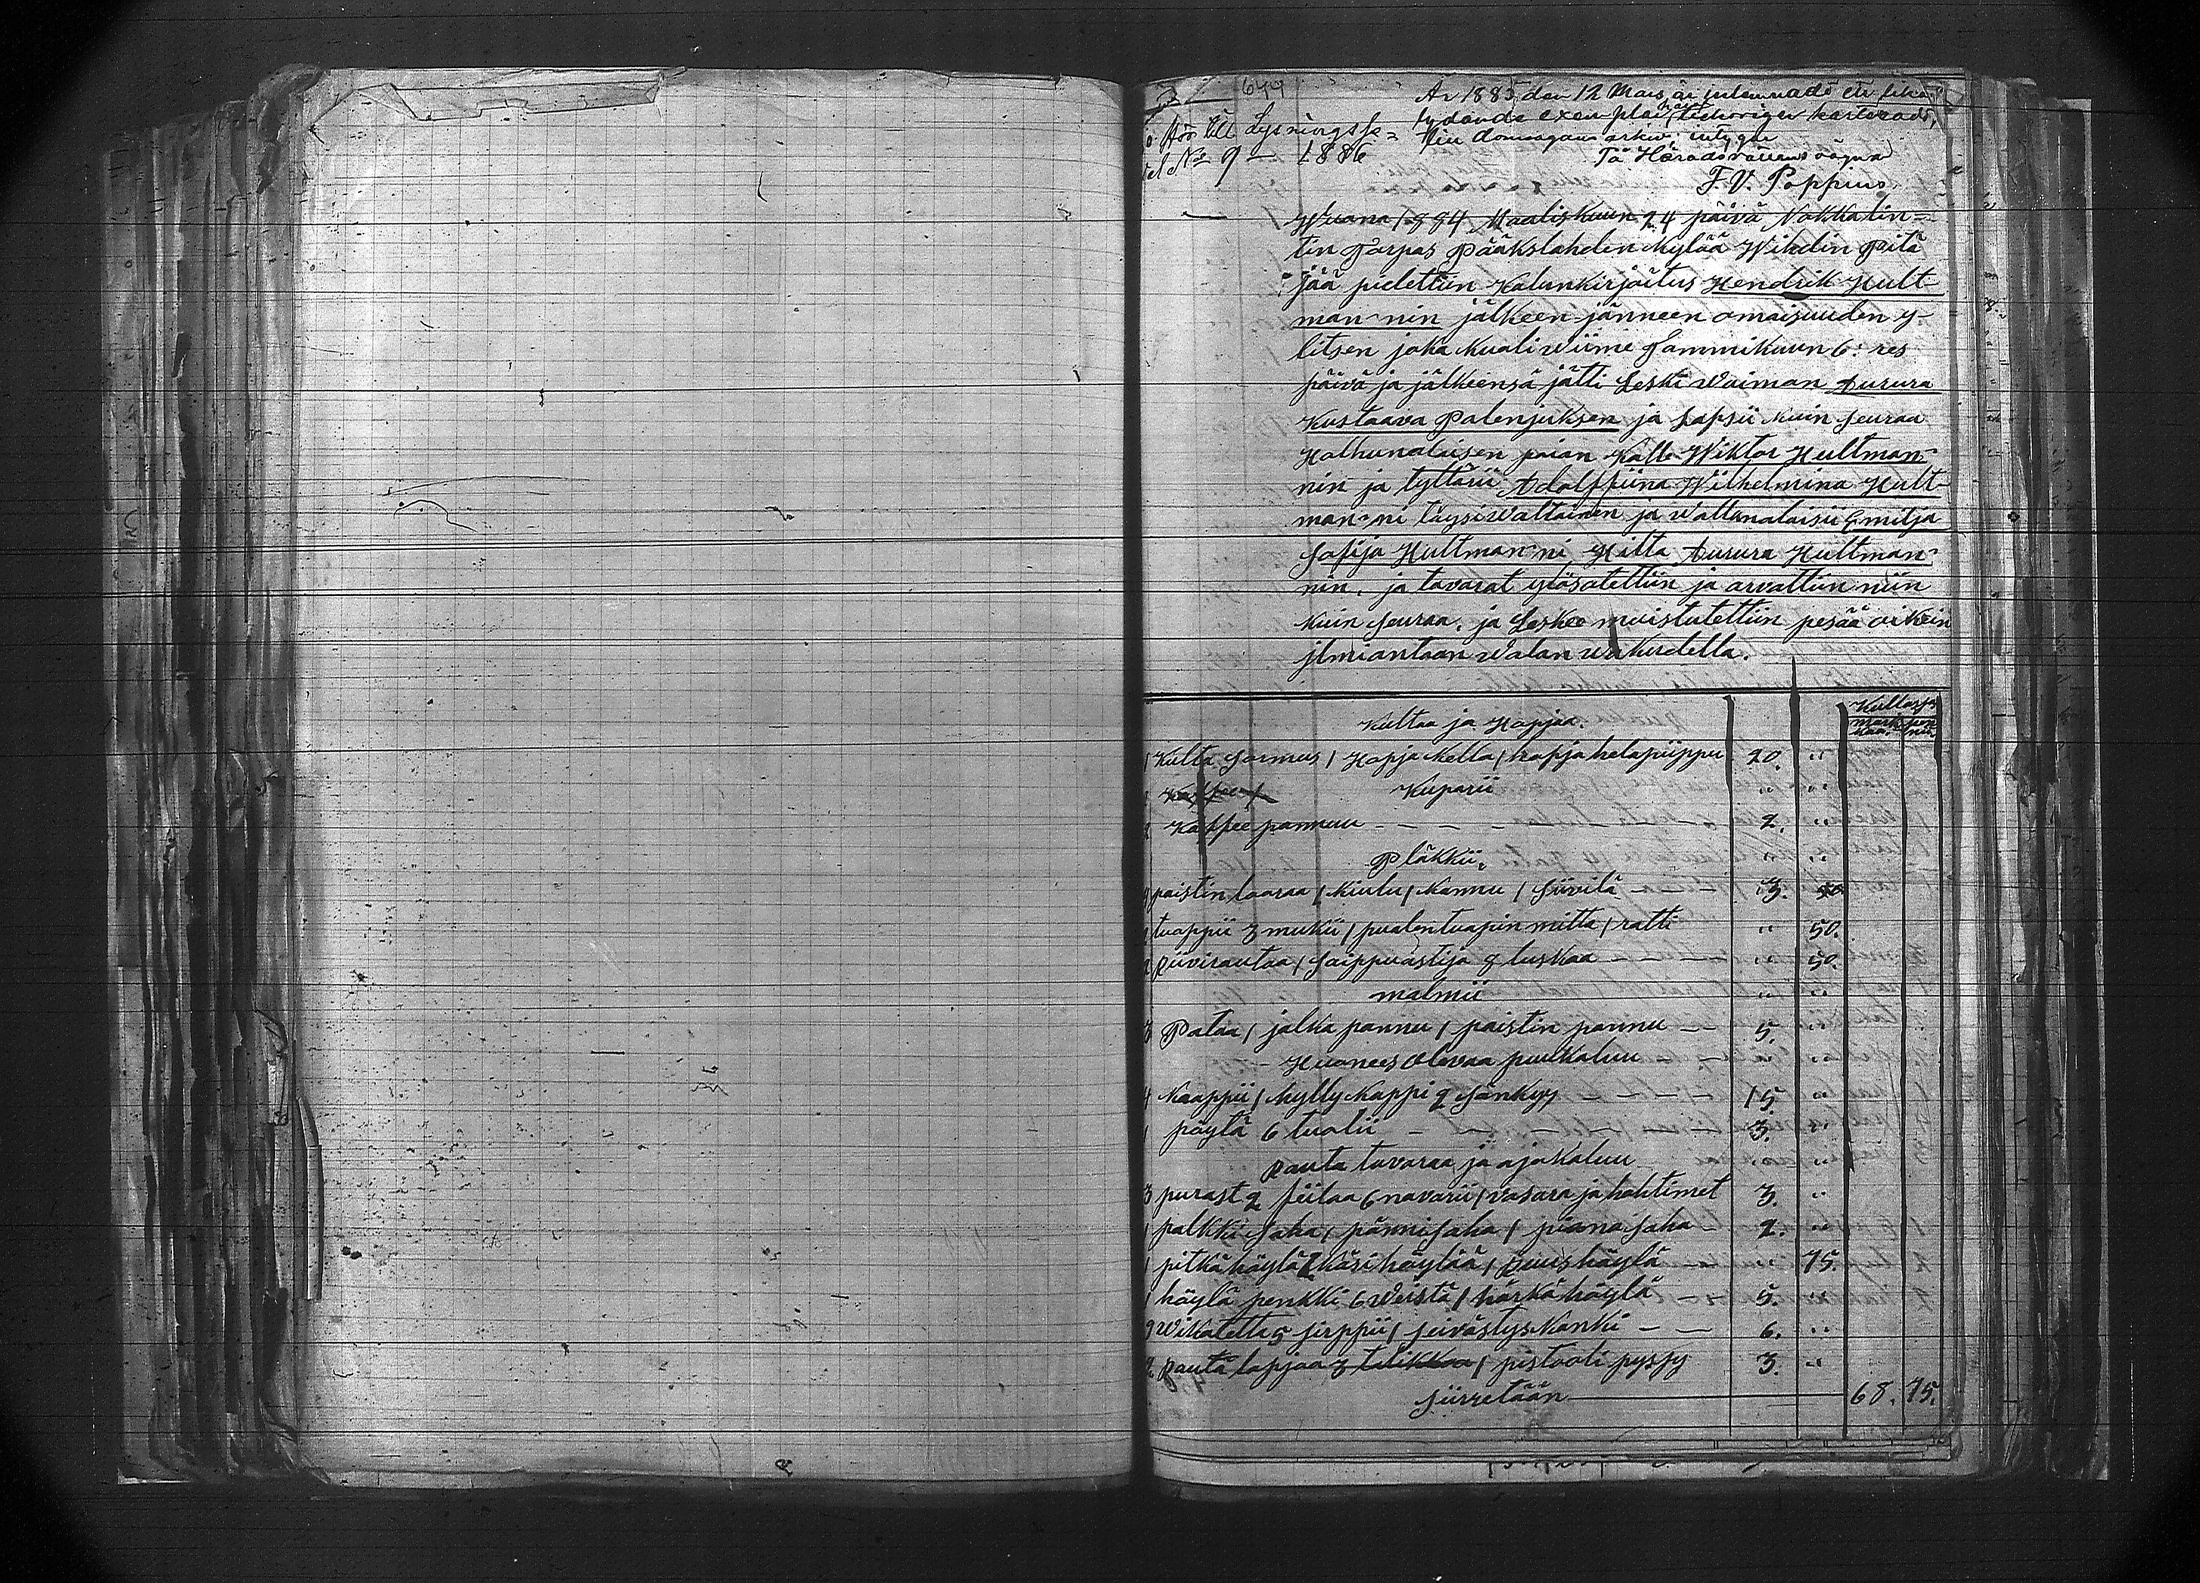 699
Hör till Lysningsse=
del No 9 — 1886
År 1885 den 12 Mars är inlemnadt ett lika
lydande exemplar, behörigen karteradt,
till domsagans arkiv; intygar
På Häradsrättens vägnar
F. V. Poppius
Wuona 1884 Maaliskuun 24 päivä Nokkalin=
tin Torpas Pääkslahden Kylää Wihdin Pitä
jää pidettiin Kalunkirjoitus Hendrik Hult-
man-nin jälkeen jänneen omaisuuden y-
litsen joka kuali wiime Tammikuun 6: res
päivä ja jälkeensä jätti Leski Waiman Aurura
Kustaava Palenjuksen ja Lapsii kuin seuraa
Holhunalaisen pojan Kalle Wiktor Hultman-
nin ja tyttärii Adolffiina Wilhelmina Hult-
man-ni täysiwaltainen ja wallanalaisii Emilja
Sofija Hultman-ni Hilta Aurura Hultman-
nin. ja tavarat ylösotettiin ja arvattiin niin
kuin seuraa. ja Leskee muistutettiin pesää oikein
jlmiantaan walan wakudella.
Kultaa ja Hopjaa.
1 Kulta Sormus 1 Hopja Kello 1 hopja helapiippu 20. "
Kuparii " "
2 Kaffee pannuu — — — — — 2. "
Pläkkii. " "
paistin laaraa 1 Kiulu 1 Kannu 1 Siivilä 3.
tuappii 3 mukii 1 pualentuapin mitta 1 ratti " 50.
2 Piivirautaa 1 Saippuastija 2 luskaa — — — " 50.
malmii " "
3 Pataa 1 jalka pannu 1 paistin pannu — — 5. "
Huanees olevaa puukaluu " "
4 Kaappii 1 hylly Kappi 2 Sänkyy 15 "
1 pöytä 6 tuolii — — 3. "
Rauta tavaraa ja ajokaluu " "
3 purast 2 fiilaa 6 navarii 1 vasara ja hohtimet 3. "
1 palkki Saha 1 pännisaha 1 piano Saha 2. "
1 pitkähöylä 2 käsi höylää 1 Ruushöylä " 75.
1 höylä penkki 6 Weistä 1 härkähöylä 5. "
9 Wikatetta 5 sirppii 1 seivästyskanki — — 6. "
2. Rauta lapjaa 3 talikkoa 1 pistooli pyssy 3. "
Siirretään 68. 75.